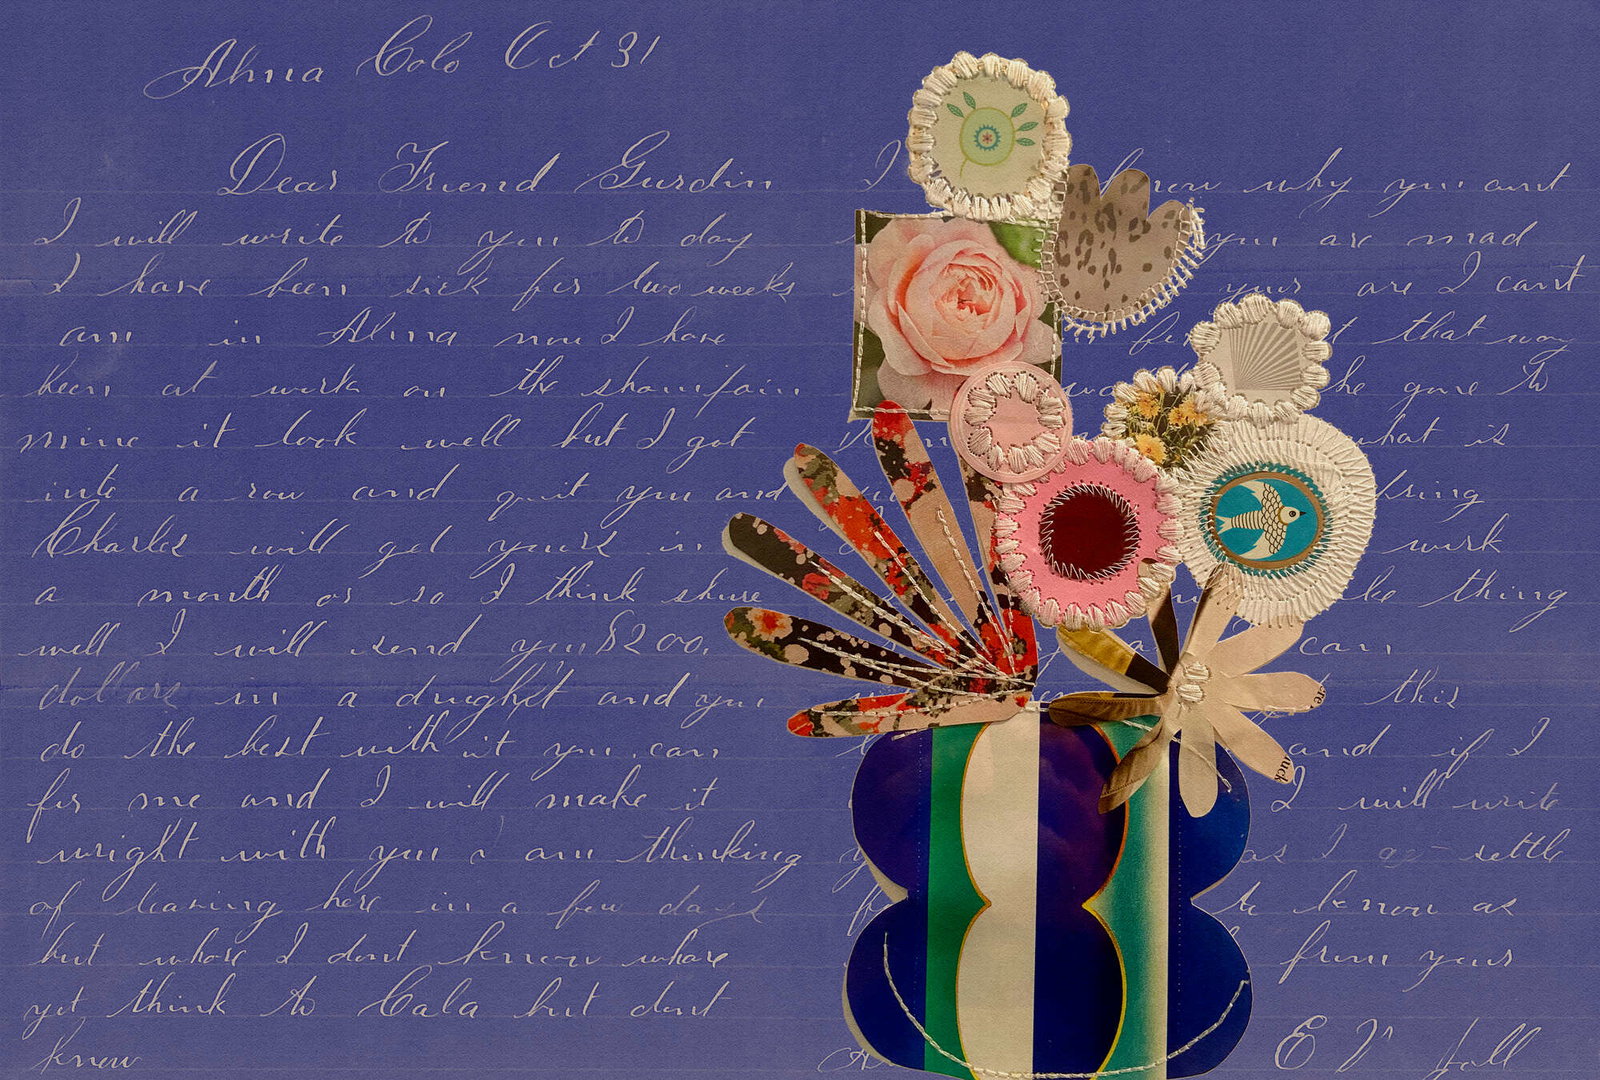 Alma Colo Oct 31
Dear Friend Gurdin
I will write to you to day
I have been sick for two weeks
am in Alma now I have
been at work on the
mine it look well but I got
into a row and quit you and
Charles will get yours in
a month or so I think shure
well I will send you $200.
dollars in a drught and you
do the best with it you can
for me and I will make it
wright with you I am thinking
of leaving here in a few days
but whare I dont know whare
yet think to Cala but dont
know
I know why you arnt
you are mad
your are I cant
that way
he gone to
what is
bring
work
like thing
can
this
and if I
I will write
as I settle
to know as
from yours
E V Hall
ruck